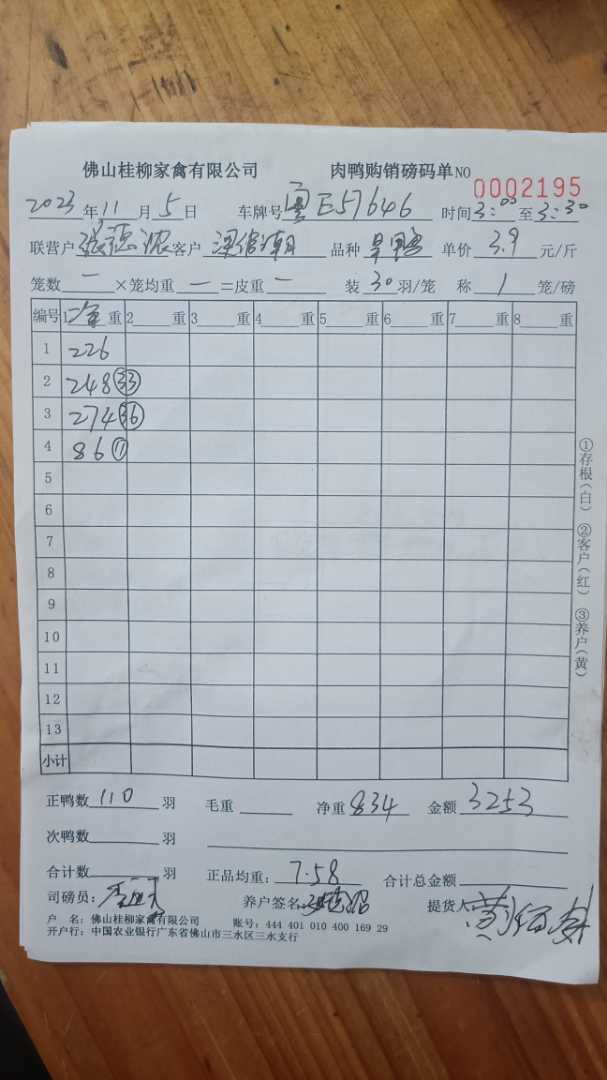 佛山桂柳家禽有限公司 肉鸭购销磅码单NO 0002195
2023年11月5日 车牌号粤E57646 时间3:05至3:30
联营户 张 客户 品种 单价3.9元/斤
笼数一×笼均重一=皮重一 装30羽/笼 称1笼/磅
编号 1 重 2 重 3 重 4 重 5 重 6 重 7 重 8 重
1 226
2 248 33
3 274 36
4 86 11
5
6
7
8
9
10
11
12
13
小计
①存根(白) ②客户(红) ③养户(黄)
正鸭数110羽 毛重 净重834 金额3253
次鸭数 羽
合计数 羽 正品均重:7.58 合计总金额
司磅员: 养户签名: 提货人 黄
户 名:佛山桂柳家禽有限公司 账号:444 401 010 400 169 29
开户行:中国农业银行广东省佛山市三水区三水支行